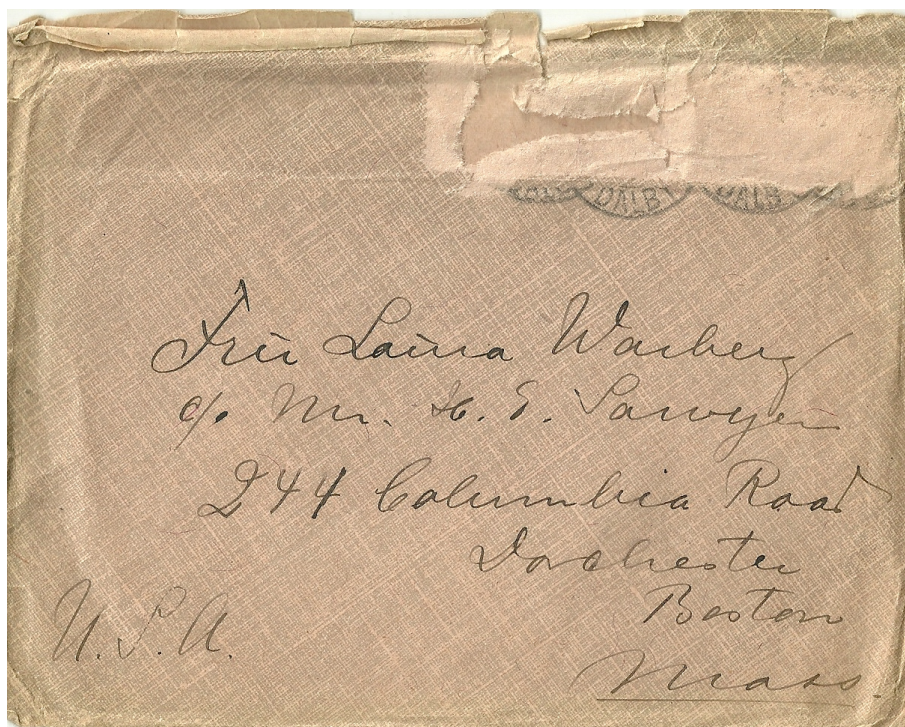 DALBY DALB
Fru Laura Warberg
c/o Mr. H. E. Sawyer
244 Columbia Road
Dorchester
Boston
U.S.A.
Mass.